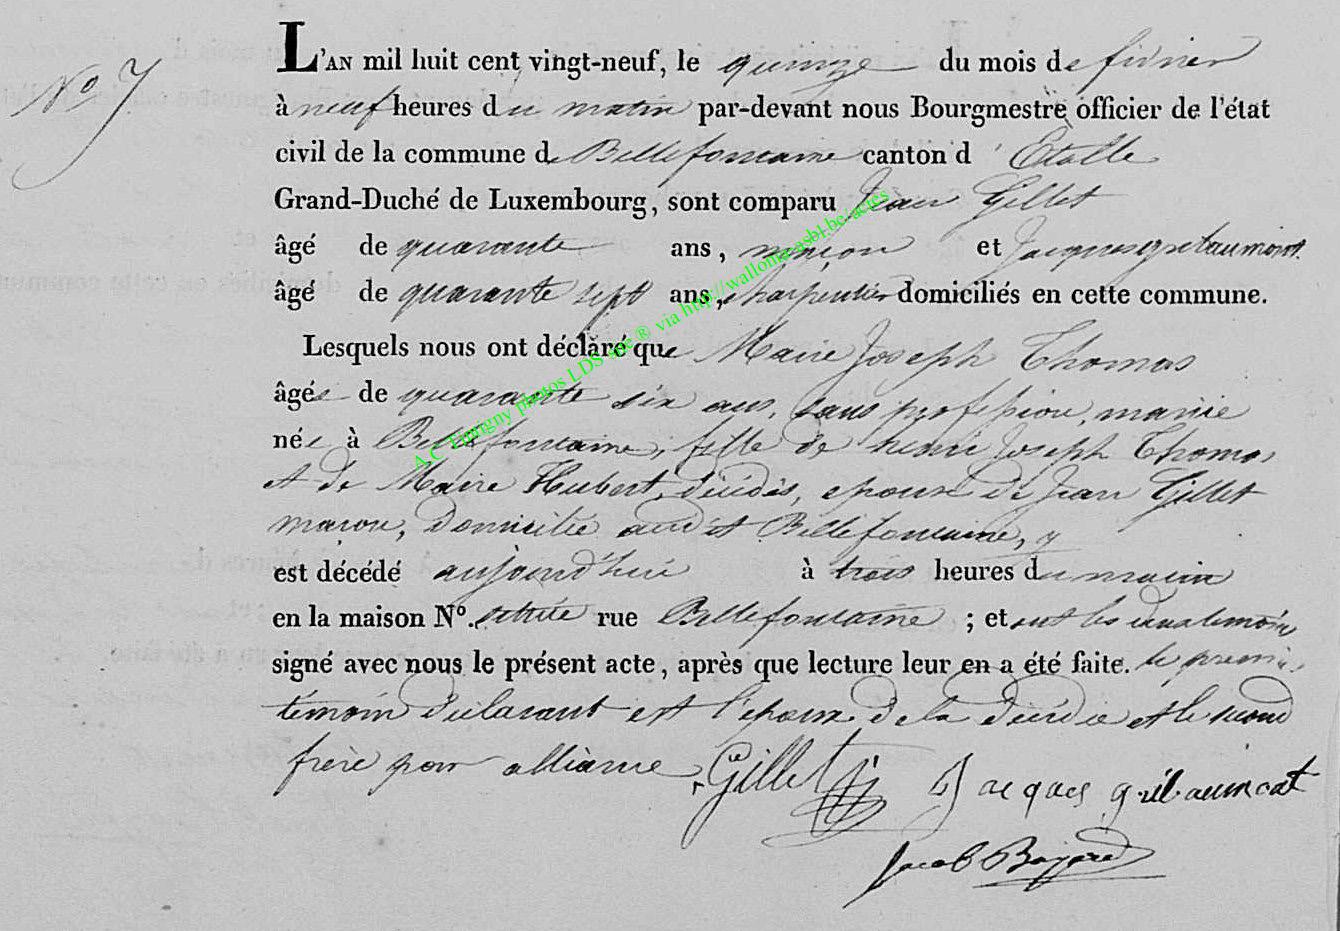 N° 7
L'AN mil huit cent vingt-neuf, le quinze du mois de fevrier
à neuf heures du matin par-devant nous Bourgmestre officier de l'état
civil de la commune de Bellefontaine canton d'Etalle
Grand-Duché de Luxembourg, sont comparu Jean Gillet
âgé de quarante ans, maçon et Jacques
âgé de quarante sept ans, charpentier domiciliés en cette commune.
Lesquels nous ont déclaré que Marie Joseph Thomas
âgée de quarante six ans, sans profession, mariée
née à Bellefontaine, fille de henri Joseph Thomas
et de Marie Hubert, décédés, epouse de Jean Gillet
maçon, domicilié audit Bellefontaine, y
est décédé aujourd'hui à trois heures du matin
en la maison N°. située rue Bellefontaine ; et ont les deux temoins
signé avec nous le présent acte, après que lecture leur en a été faite. le premier
témoin déclarant est l'epoux de la décédée et le second
frère par alliance
Gillet Jacques
Jacob
A.C Tintigny photos LDS site ® via http://wallonia-asbl.be/actes